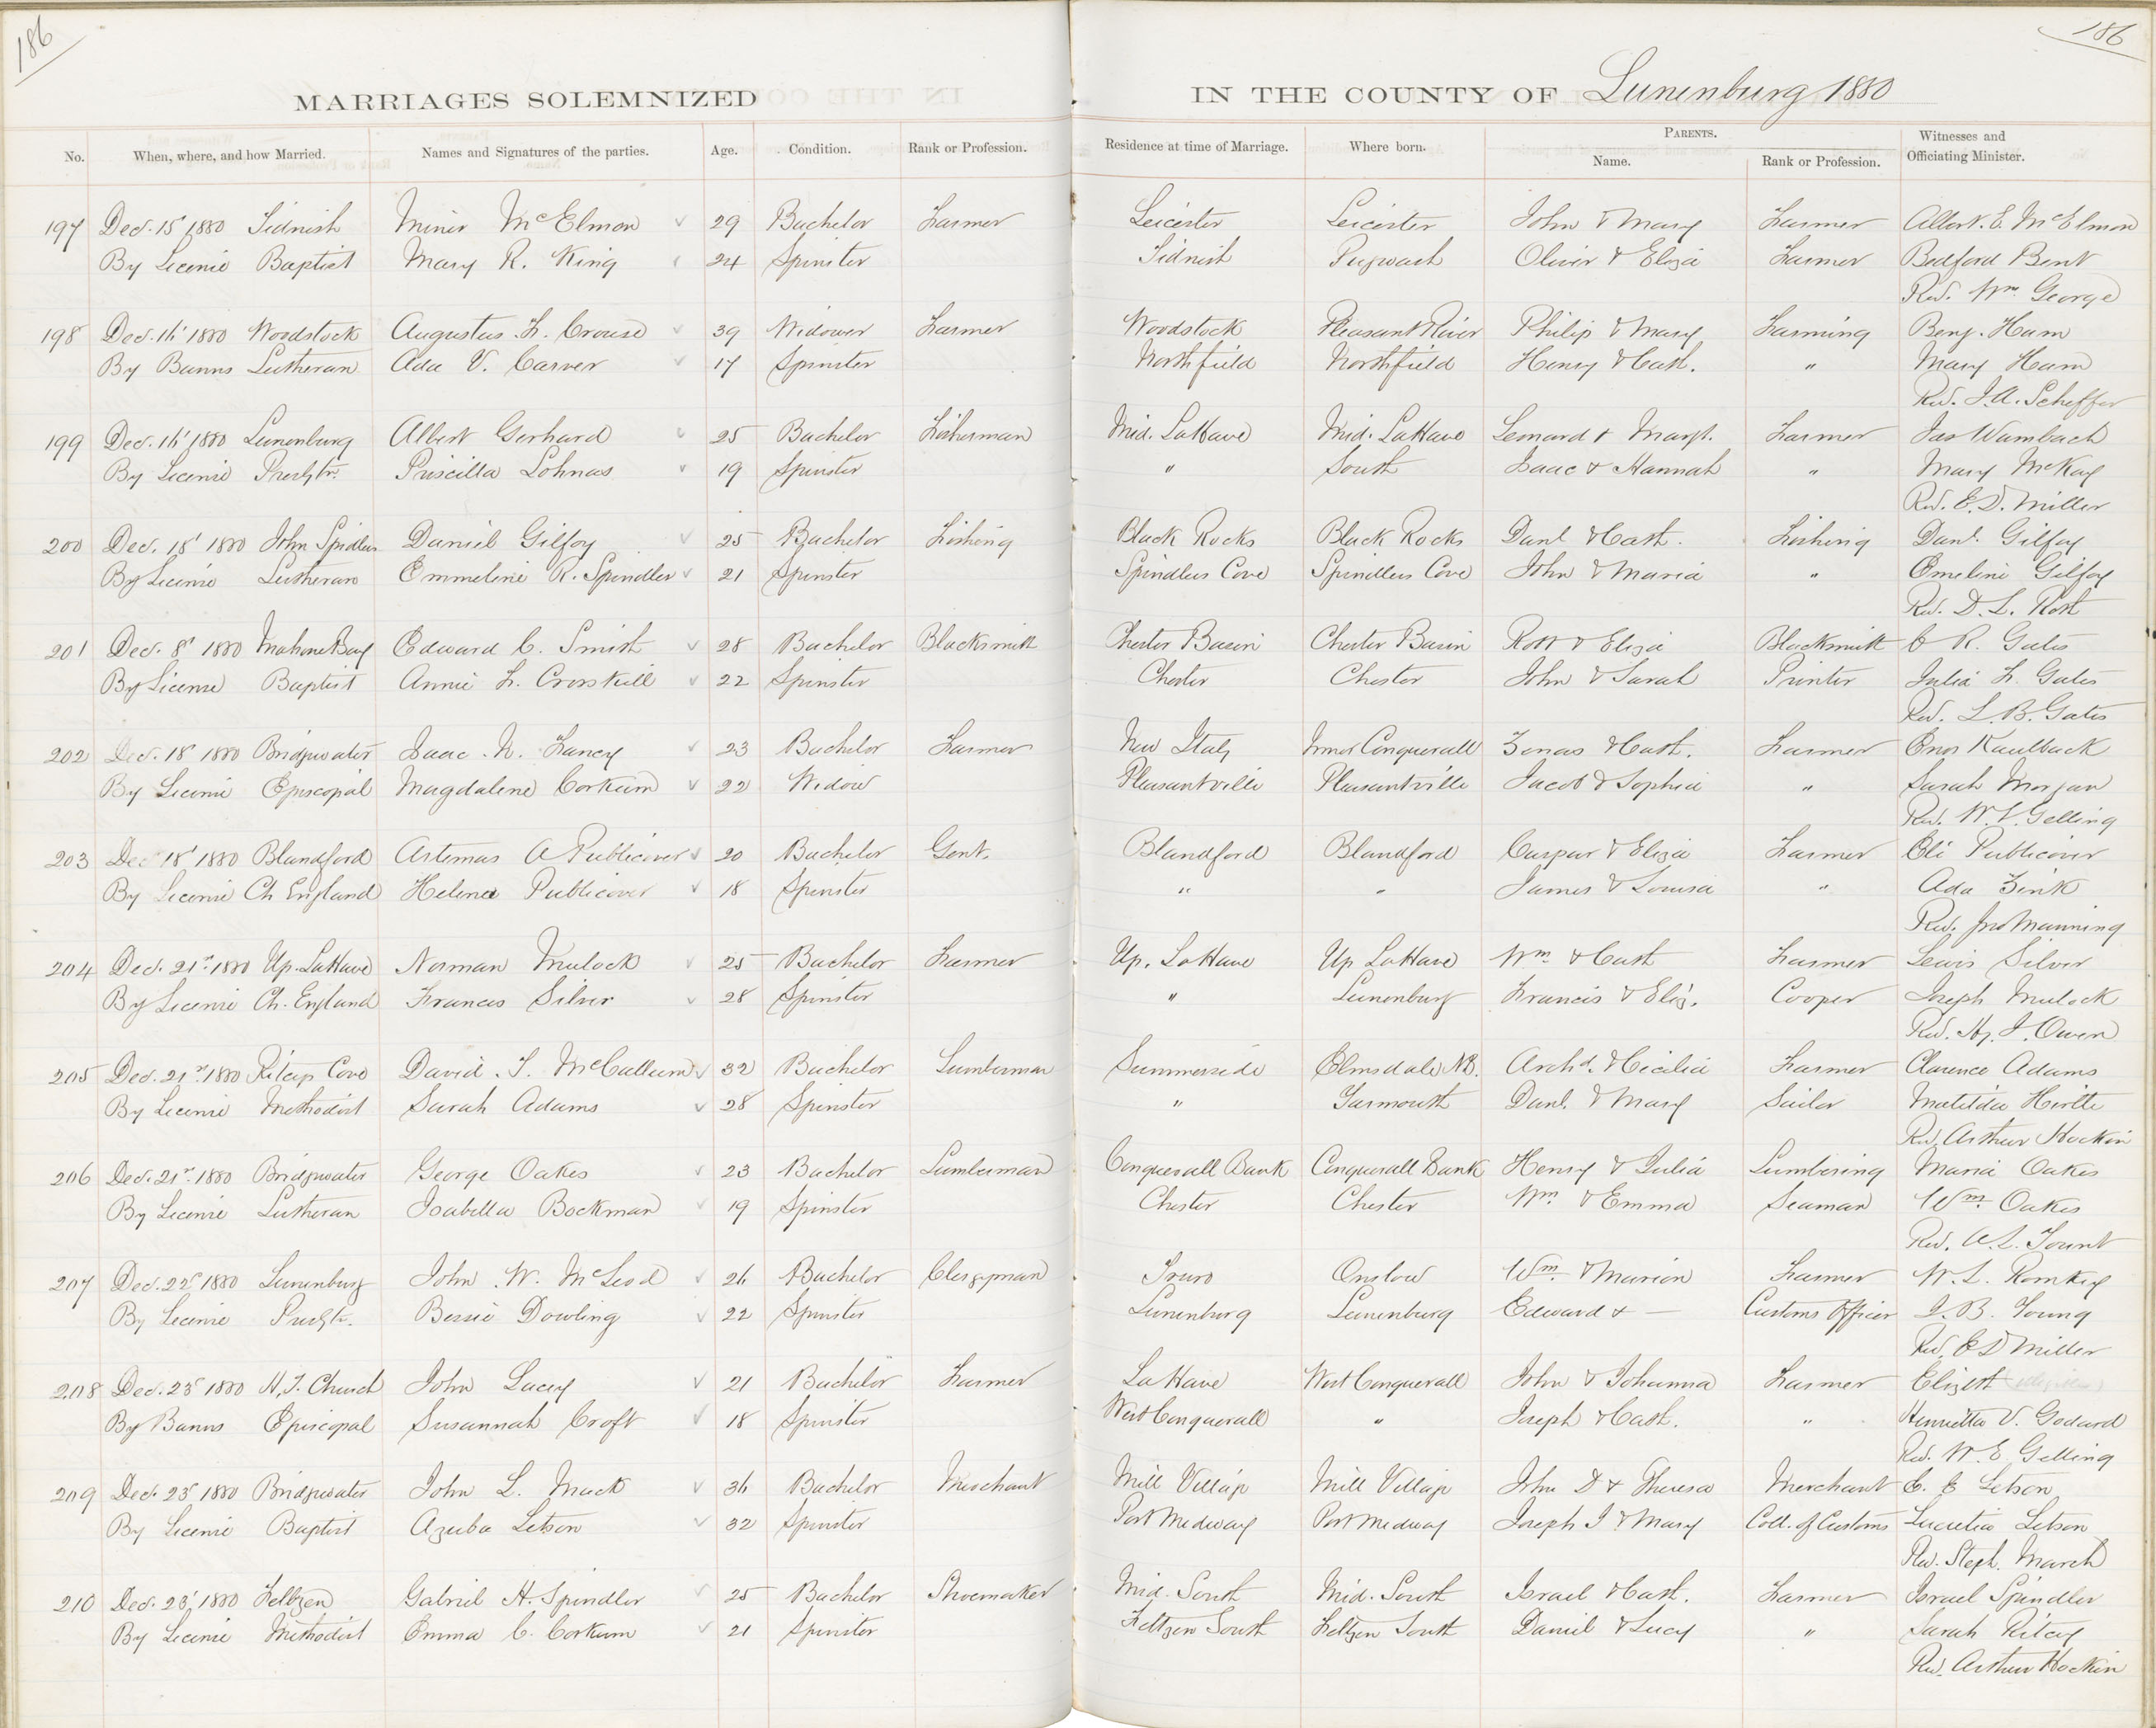 186
186
MARRIAGES SOLEMNIZED IN THE COUNTY OF Lunenburg 1880
No. When, where, and how Married. Names and Signatures of the parties. Age. Condition. Rank or Profession. Residence at time of Marriage. Where born. PARENTS. Name. Rank or Profession. Witnesses and Officiating Minister.
197 Dec. 15 1880 Tidnish Miner McElmon 29 Bachelor Farmer Leicester Leicester John & Mary Farmer Albert. E. McElmon
By License Baptist Mary R. King 24 Spinster Tidnish Pugwash Oliver & Eliza Farmer Bedford Bent
Rev. Wm George
198 Dec. 16' 1880 Woodstock Augustus F. Crouse 39 Widower Farmer Woodstock Pleasant River Philip & Mary Farming Benj. Ham
By Banns Lutheran Ada V. Carver 17 Spinster Northfield Northfield Henry & Cath. " Mary Ham
Rev. J.A. Scheffer
199 Dec. 16' 1880 Lunenburg Albert Gerhard 25 Bachelor Fisherman Mid. LaHave Mid. LaHave Leonard & Margt. Farmer Jas Wambach
By License Presbtn. Priscilla Lohnas 19 Spinster " South Isaac & Hannah " Mary McKay
Rev. E.D. Miller
200 Dec. 18' 1880 John Spidlers Daniel Gilfoy 25 Bachelor Fishing Black Rocks Black Rocks Danl & Cath. Fishing Danl. Gilfoy
By License Lutheran Emmeline R. Spindler 21 Spinster Spindlers Cove Spindlers Cove John & Maria " Emeline Gilfoy
Rev. D. L. Roth
201 Dec. 8' 1880 Mahone Bay Edward C. Smith 28 Bachelor Blacksmith Chester Basin Chester Basin Robt & Eliza Blacksmith C R. Gates
By License Baptist Annie L. Crosskill 22 Spinster Chester Chester John & Sarah Printer Julia F. Gates
Rev. L.B. Gates
202 Dec. 18' 1880 Bridgwater Isaac. N. Fancy 23 Bachelor Farmer New Italy Inner Conquerall Zenas & Cath. Farmer Enos Kaulback
By License Episcopal Magdalene Corkum 22 Widow Pleasantville Pleasantville Jacob & Sophia " Sarah Morgan
Rev. W.E. Gelling
203 Dec 18' 1880 Blandford Artemas A Publicover 20 Bachelor Gent. Blandford Blandford Caspar & Eliza Farmer Eli Publicover
By License Ch England Helena Publicover 18 Spinster " " James & Louisa " Ada Zink
Rev. Jno Manning
204 Dec. 21st. 1880 Up. LaHave Norman Mulock 25 Bachelor Farmer Up. LaHave Up LaHave Wm & Cath Farmer Lewis Silver
By License Ch. England Frances Silver 28 Spinster " Lunenburg Francis & Eliz. Cooper Joseph Mulock
Rev. Hy. J. Owen
205 Dec. 21st 1880 Ritcys Cove David. T. McCallum 32 Bachelor Lumberman Summerside Elmsdale NB. Archd. & Cicilia Farmer Clarence Adams
By License Methodist Sarah Adams 28 Spinster " Yarmouth Danl. & Mary Sailor Matilda Hirtle
Rev. Arthur Hockin
206 Dec. 21st. 1880 Bridgwater George Oakes 23 Bachelor Lumberman Conquerall Bank Conquerall Bank Henry & Julia Lumbering Maria Oakes
By License Lutheran Isabella Bockman 19 Spinster Chester Chester Wm & Emma Seaman Wm Oakes
Rev. A.L. Yount
207 Dec. 22d 1880 Lunenburg John. W. McLeod 26 Bachelor Clergyman Truro Onslow Wm & Marion Farmer W. L. Romkey
By License Presbtn. Bessie Dowling 22 Spinster Lunenburg Lunenburg Edward & — Customs Officer J. B. Young
Rev. E D Miller
208 Dec. 23d 1880 H.T. Church John Lacey 21 Bachelor Farmer LaHave West Conquerall John & Johanna Farmer Elizbth (illegible)
By Banns Episcopal Susannah Croft 18 Spinster West Conquerall " Joseph & Cath. " Henrietta V. Godard
Rev. W. E. Gelling
209 Dec. 23d 1880 Bridgwater John L. Mack 36 Bachelor Merchant Mill Village Mill Village John D & Theresa Merchant E. E Letson
By License Baptist Azuba Letson 32 Spinster Port Medway Port Medway Joseph J & Mary Coll. of Customs Lucretia Letson
Rev. Steph. March
210 Dec. 23' 1880 Feltzen Gabriel H. Spindler 25 Bachelor Shoemaker Mid. South Mid. South Israel & Cath. Farmer Israel Spindler
By License Methodist Emma C. Corkum 21 Spinster Feltzen South Feltzen South Daniel & Lucy " Sarah Ritcey
Rev. Arthur Hockin